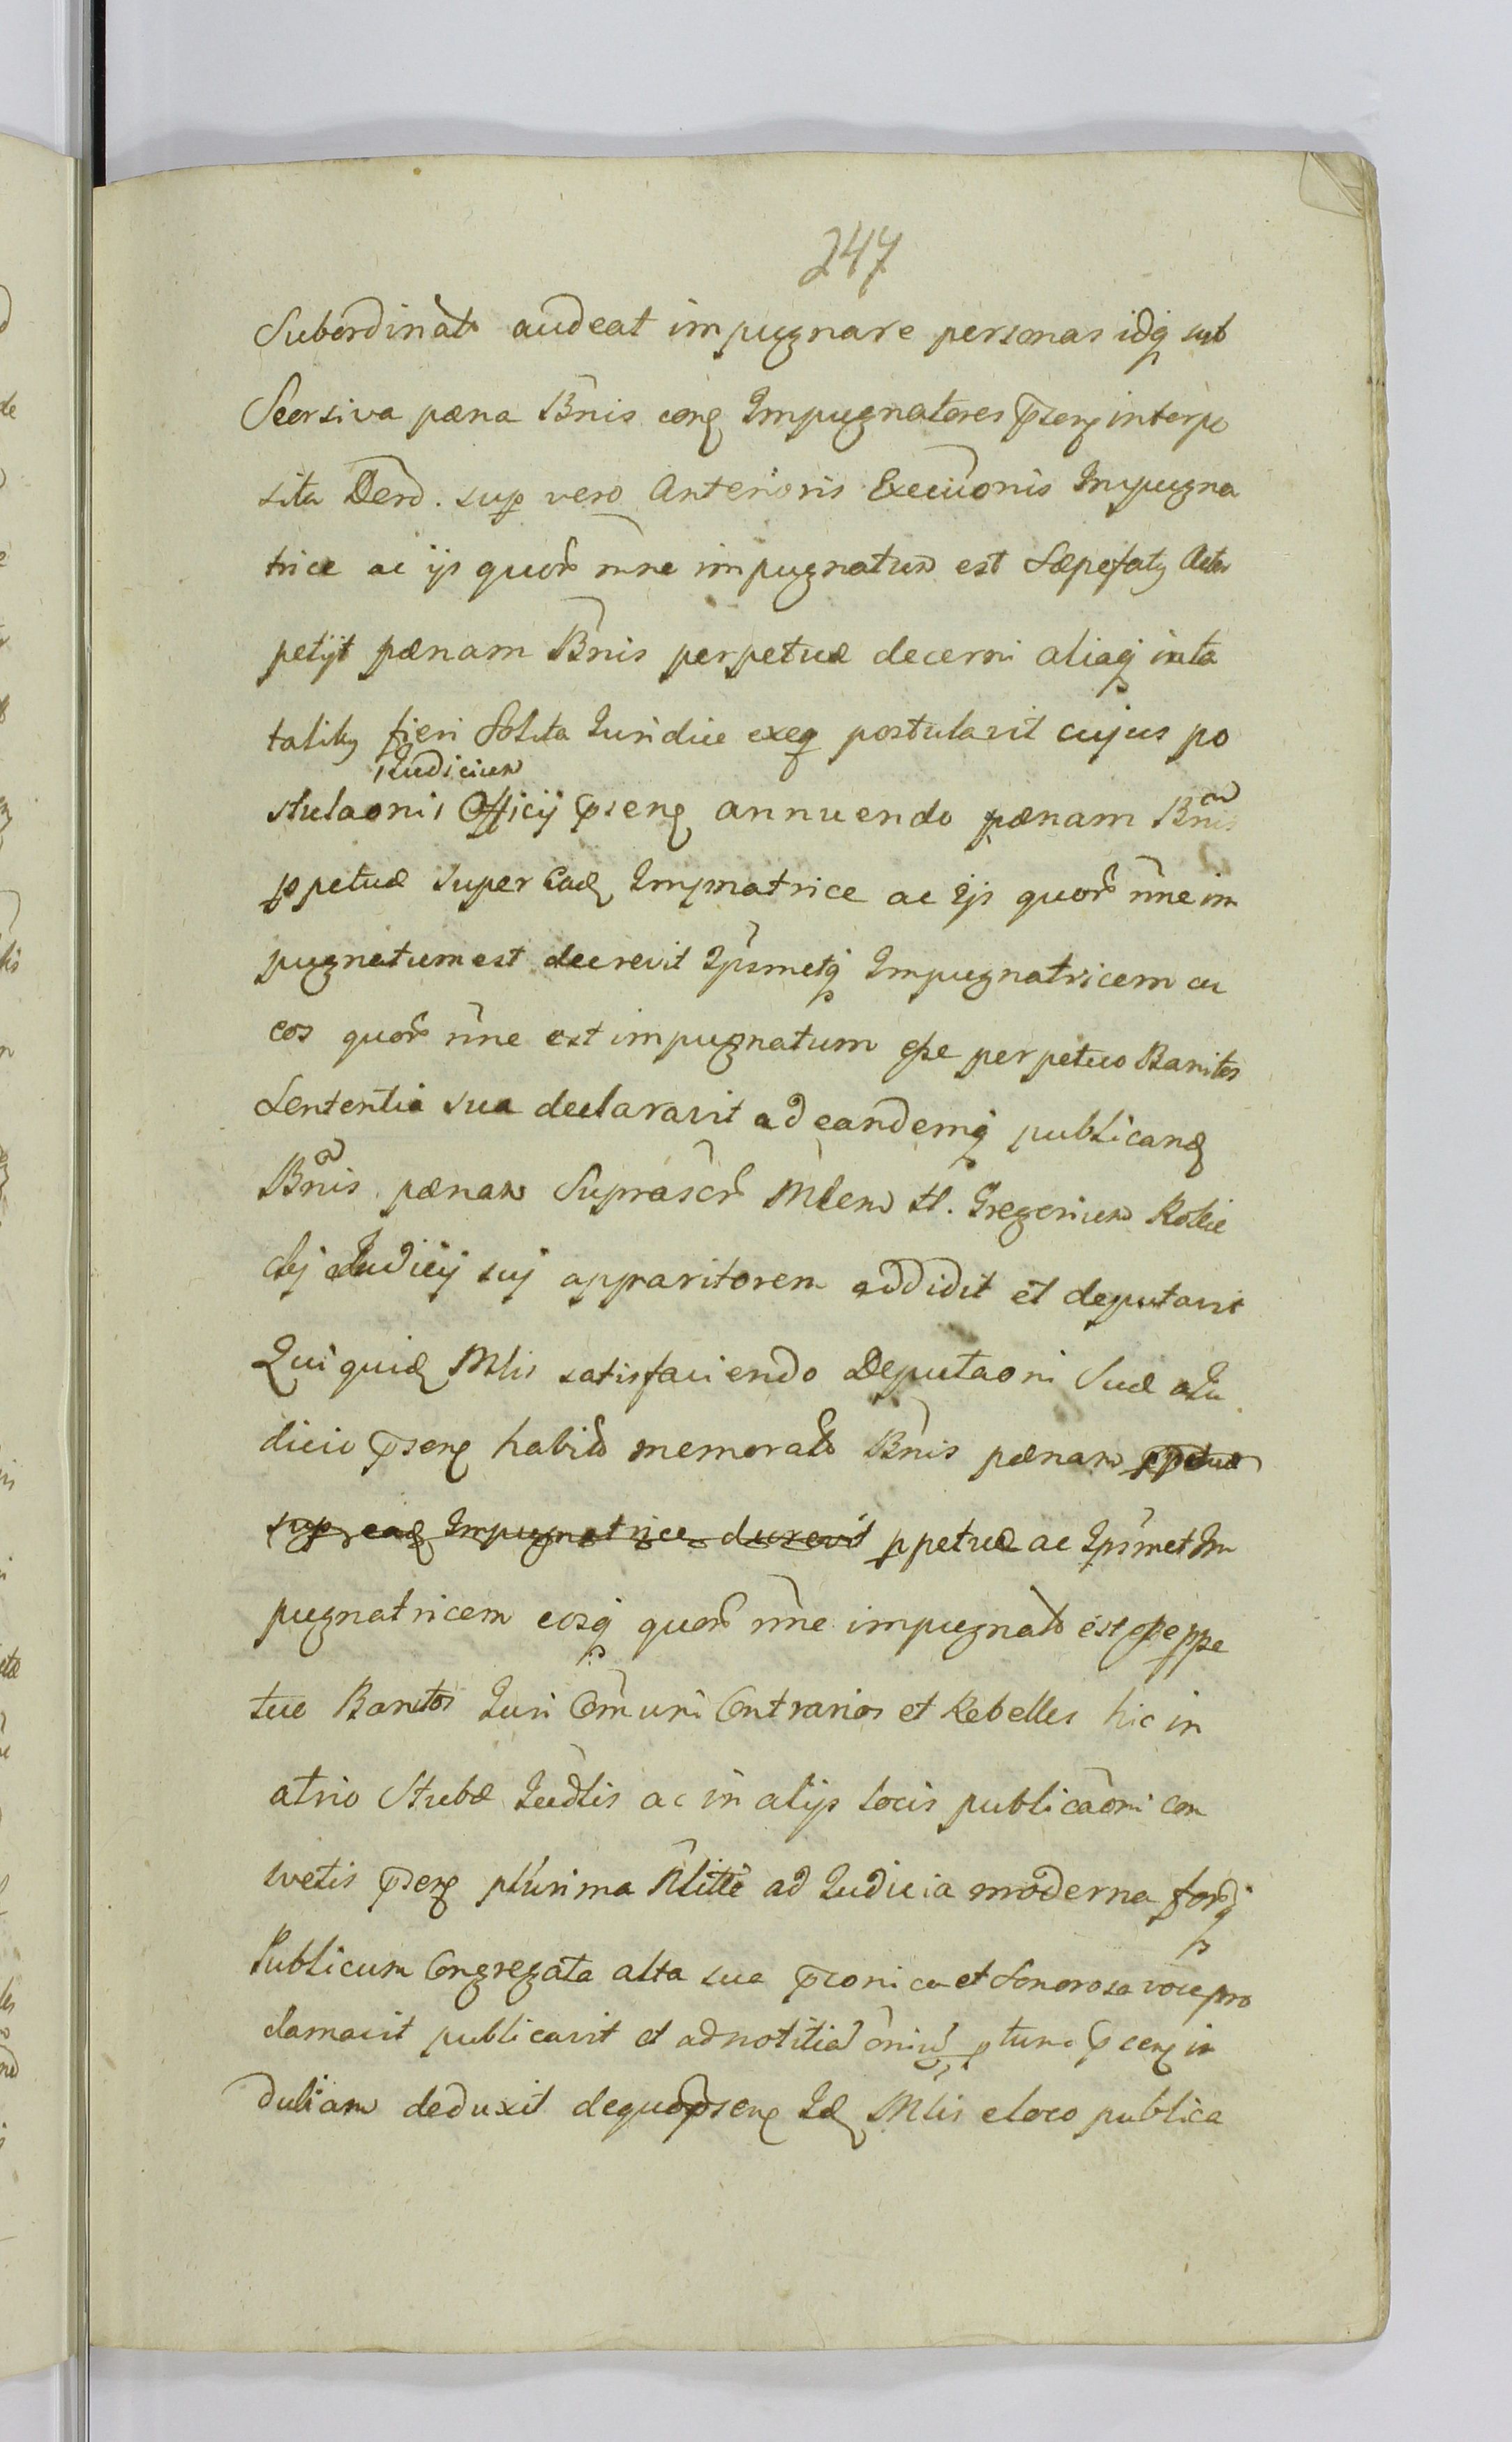 247
Subordinat audeat impugnare personas idq sub
Seorsiva pæna Bnis conq Impugnatores psenq interpo
sita Derd. sup vero Anterioris Execuonis Impugna
trice ac ijs quor nne impugnatum est Sæpefaty Actor
petijt pænam Bnis perpetuæ decerni aliaq inta
taliby fieri Solita Iuridice exeq postulavit cujus po
Iudicium
stulaonis Officij psenq annuendo pænam Bnis
ppetuæ super Eadq Impnatrice ac Ijs quor nne im
pugnatum est decrevit Ipsmetq Impugnatricem ac
eos quor nne est impugnatum pse perpetuo Banitos
Sententia sua declaravit ad eandemq publicandq
Bnis pænam Suprascr Mlem st. Gregorium
Iudicij sui apparitorem addidit et deputavit
Qui quidq Mlis satisfaciendo Deputaoni Suæ a Iu
dicio psenq habit memorat Bnis pænam ppetuæ
sup eadq Impugnatrice decrevit ppetuæ ac Ipsmet Im
pugnatricem eosq quor nne impugnat est pse ppe
tuo Banitos Iuri Comuni Contrarios et Rebelles hic in
atrio Stubæ Iudlis ac in alijs locis publicaoni con
svetis psenq plurima Nlitte ad Iudicia moderna forq
Publicum Congregata alta sua pconica et Sonorosa voce pro
clamavit publicavit et ad notitia oniu ptunc psenq in
duliam deduxit de quo psenq Idq Mlis e loco publica